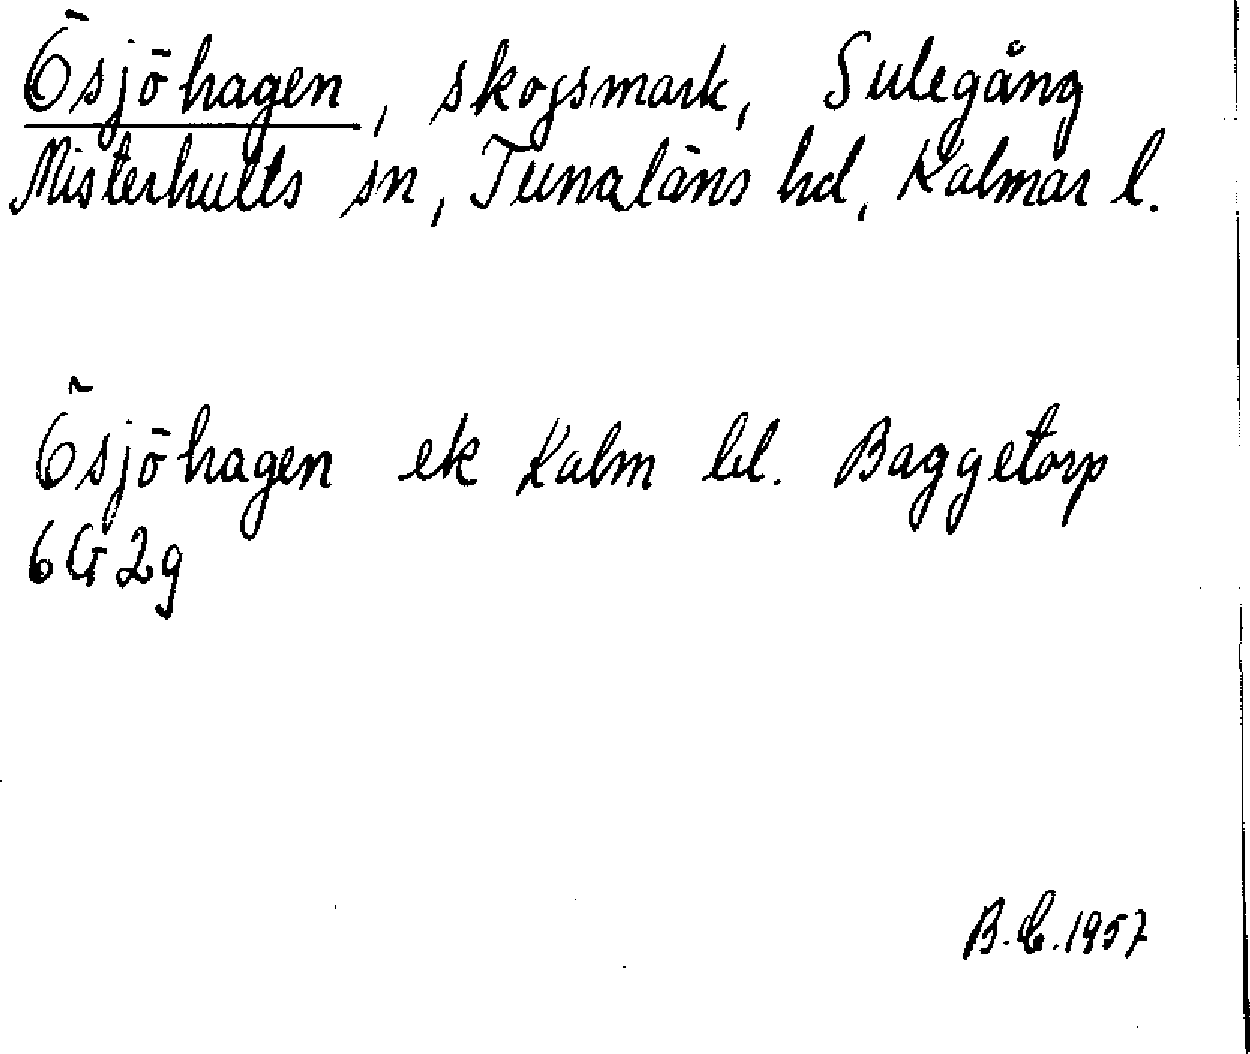 Ösjöhagen, skogsmark, Sulegång
Misterhults sn, Tunaläns hd, Kalmar l.
Ösjöhagen ek Kalm bl. Baggetorp
6G2g
B.E.1957